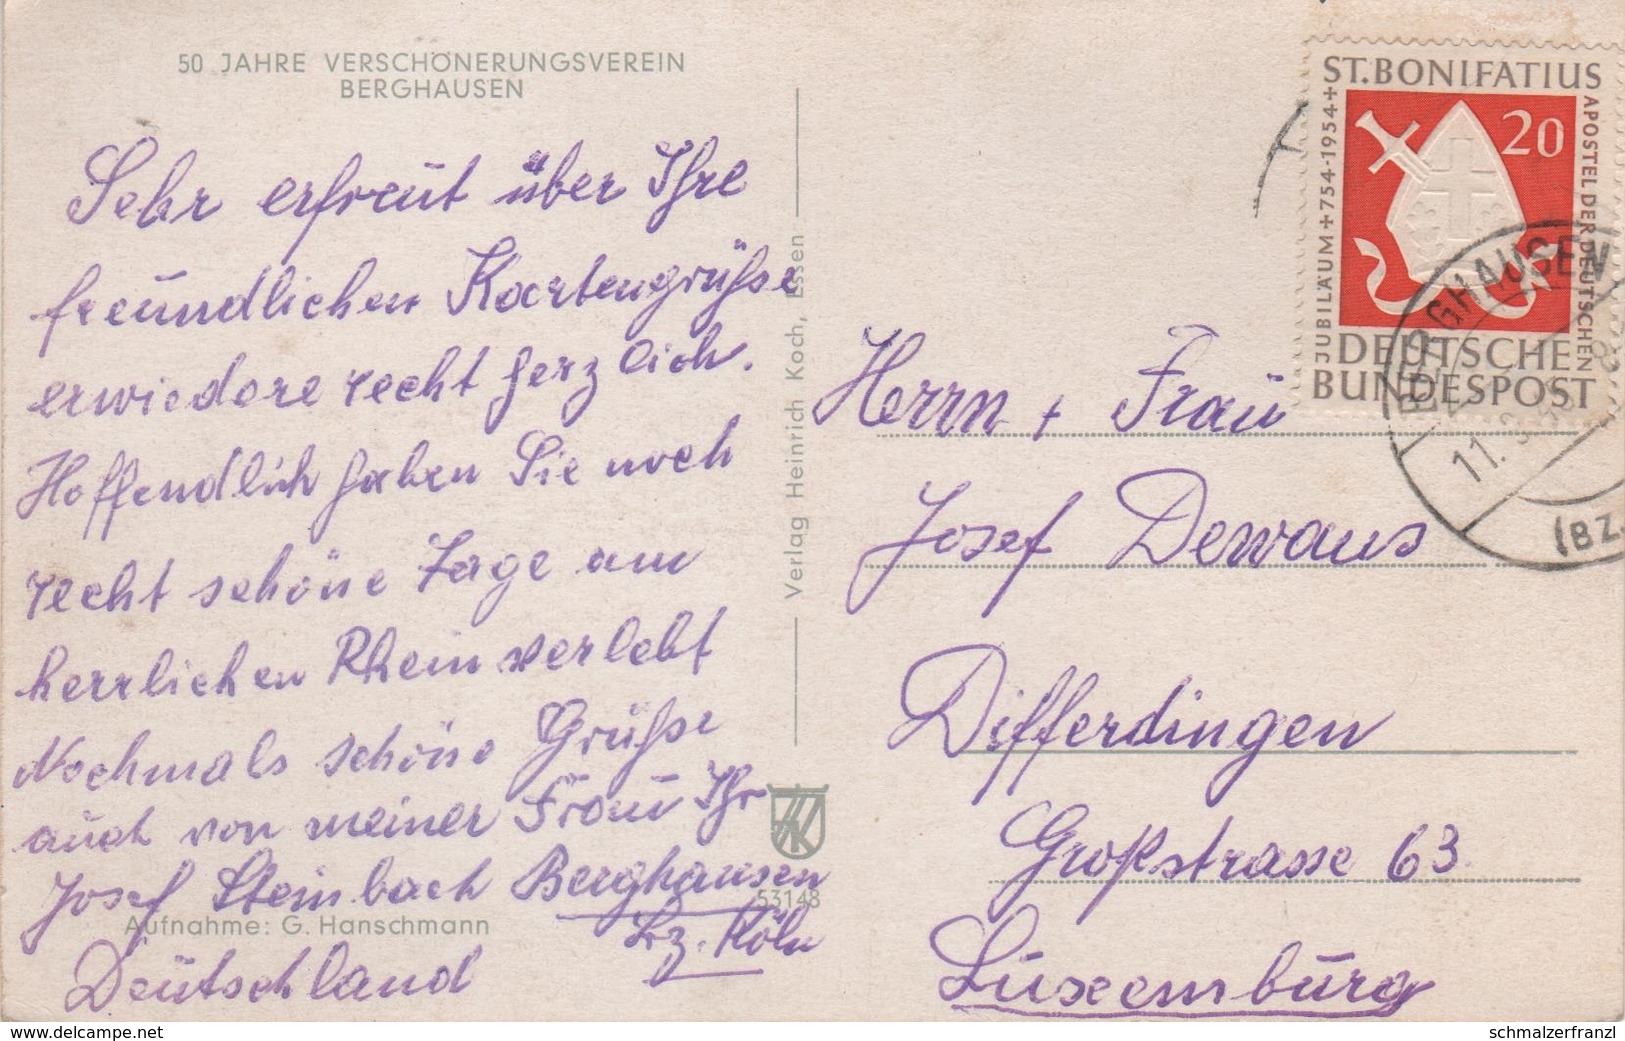 50 JAHRE VERSCHÖNERUNGSVEREIN
BERGHAUSEN
Sehr erfreut über Ihre
freundlichen Kartengrüße
erwiedere recht herzlich.
Hoffendlich haben Sie noch
recht schöne Tage am
herrlichen Rhein verlebt
Nochmals schöne Grüße
auch von meiner Frau Ihr
Josef Steinbach Berghausen
Bz. Köln
Deutschland
Aufnahme: G. Hanschmann
Verlag Heinrich Koch, Essen
53148
ST. BONIFATIUS
JUBILÄUM + 754-1954 +
APOSTEL DER DEUTSCHEN
20
DEUTSCHE
BUNDESPOST
BERGHAUSEN
(BZ.
Herrn + Frau
Josef Dewaus
Differdingen
Großstrasse 63
Luxemburg
www.delcampe.net
schmalzerfranzl